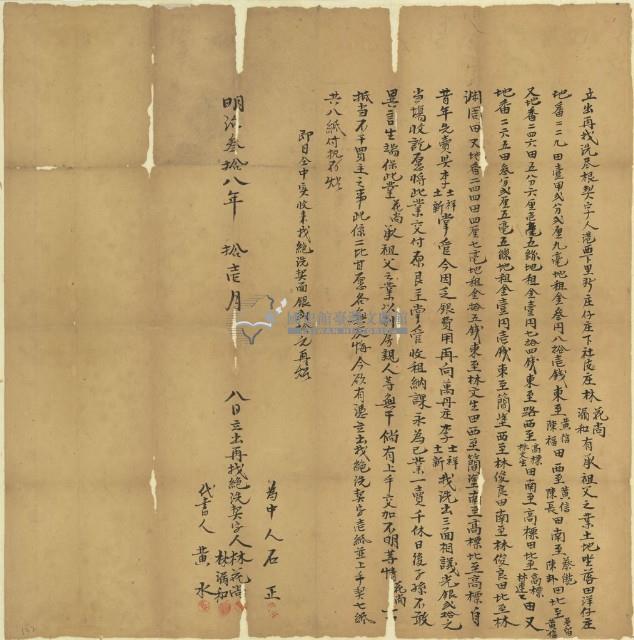 立出再找洗尽根契字人港西下里阿庄仔庄下社皮庄林花尚潘和有承祖父之業土地坐落田洋仔庄
地番二二九田壹甲弍分弍厘九毫地租金叁円八拾壹錢東至黃信陳福田西至黃信陳長田南至蔡能陳卦田北至黃信田
又地番二四六田五分六厘壱毫五絲地租金壹円七拾四錢東至路西至高標林文生田南至高標田北至高標林連田又
地番二六五田叁分弍厘五毫五絲地租金壹円壱錢東至簡塗西至林俊良田南至林俊良田北至林
潤園田又地番二四四田四厘七毫地租金拾五錢東至林文生田西至簡塗南至高標北至高標自
昔年先賣與李士祥士新掌管今因乏銀費用再向萬丹庄李士祥士新找洗出三面相議光銀弍拾元
当場收訖愿將此業交付原良主掌管收租納課永為己業一賣千休日後子孫不敢
異言生端保此業花尚承祖父之業以外房親人等無干倘有上手交加不明等情花尚一
抵当不干買主之事此係二比甘愿各無反悔今欲有憑立出找絕洗契字壱紙並上手契七紙
共八紙付执存炤
即日仝中實收来找絕洗契面銀弍拾元再炤
明治叁拾八年 拾壱月 八日立出再找絕洗契字人林花尚林潘和
為中人石正
代書人黃水
國史館臺灣文獻館
TAIWAN HISTORICA